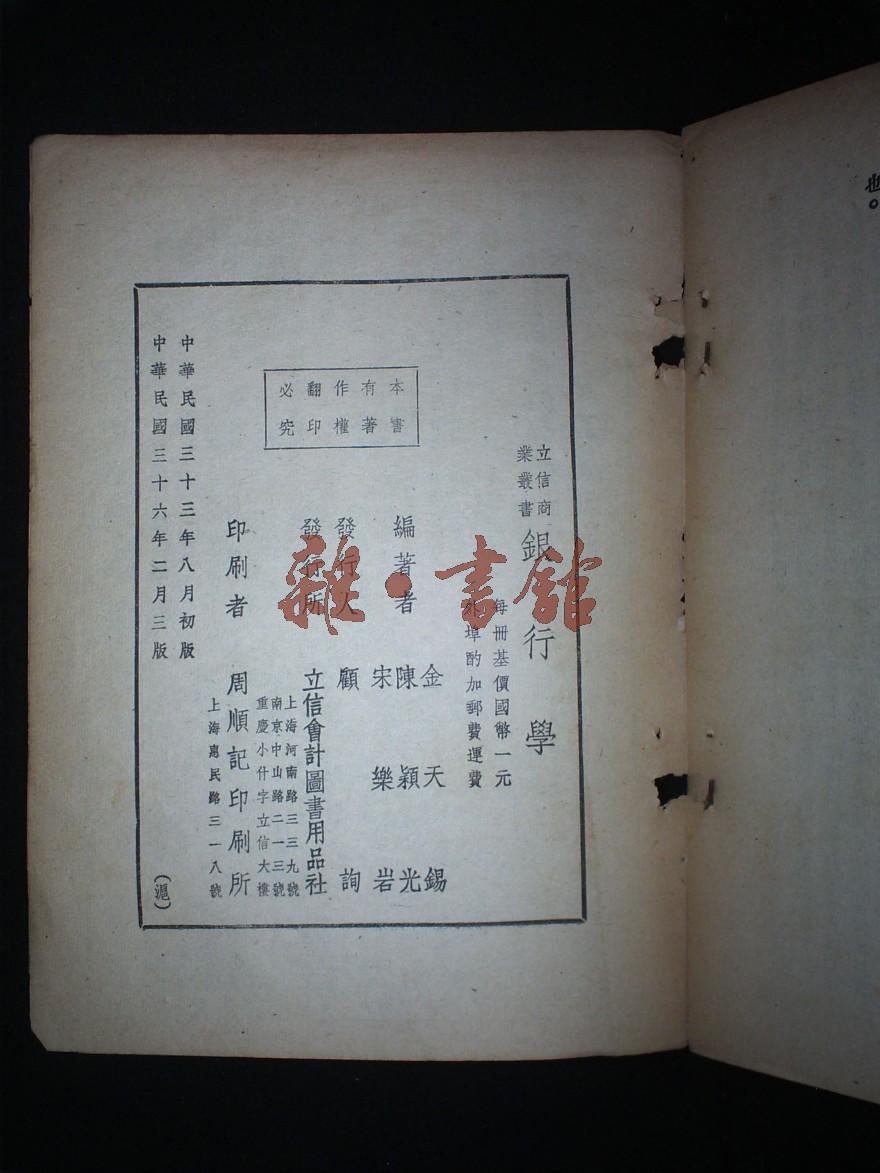 立信商
業叢書
銀行學
每冊基價國幣一元
外埠酌加郵費運費
本書
有著
作權
翻印
必究
編著者
金天錫
陳穎光
宋樂岩
發行人 顧詢
發行所 立信會計圖書用品社
上海河南路三三九號
南京中山路二一三號
重慶小什字立信大樓
印刷者 周順記印刷所
上海惠民路三一八號
中華民國三十三年八月初版
中華民國三十六年二月三版
(滬)
也。
雜·書館